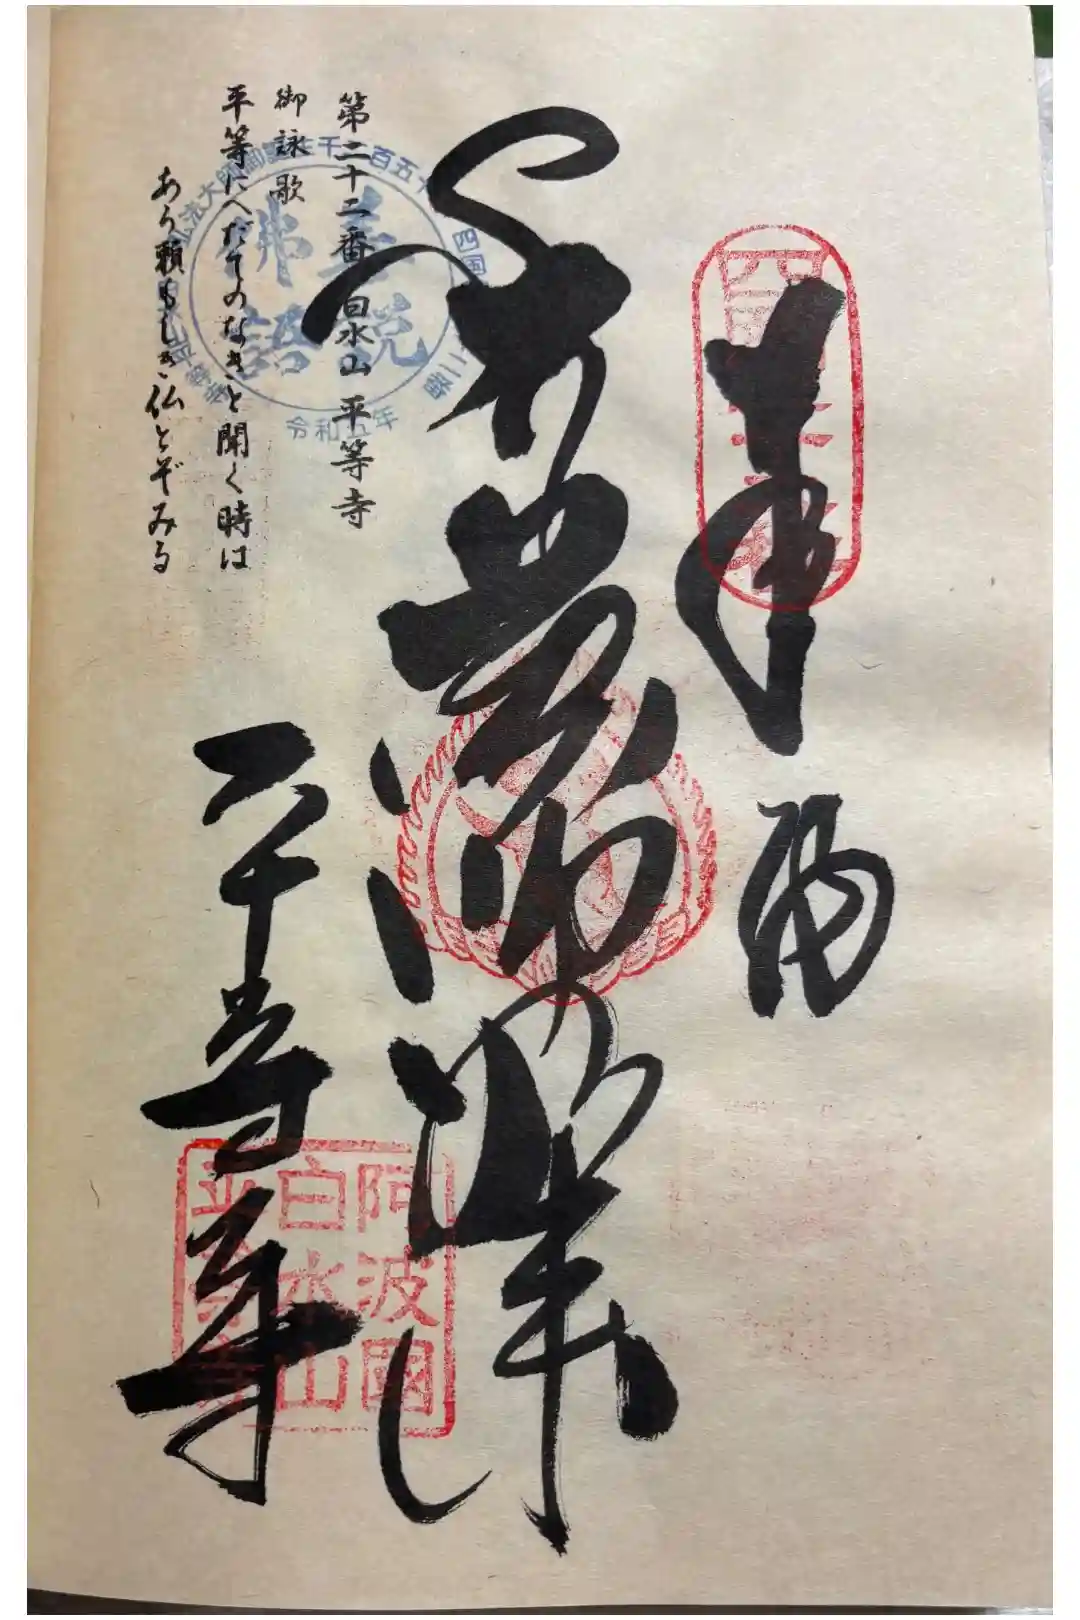 奉納
四国第二十二番
薬師如来
平等寺
阿波國
白水山
平等寺
第二十二番 白水山 平等寺
御詠歌
平等にへだてのなきと聞く時は
あら頼もしき仏とぞみる
令和五年